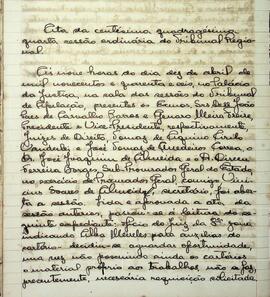 Ata da centésima quadragésima
quarta sessão ordinária do Tribunal Regio-
nal.
Às nove horas do dia dez de abril de
mil novecentos e quarenta e seis, no Palácio
da Justiça, na sala das sessões do Tribunal
de Apelação, presentes os Exmos. Srs. Des. João
de Carvalho Barros e
Presidente e Vice-Presidente, respectivamente,
Juizes de Direito
e José Tomaz de Correa, o
Dr. José Joaquim de Almeida e o Dr.
Ferreira Sub-Procurador Geral do Estado
no exercício de Procurador Geral, comigo
Soares de Almeida, secretário, foi aber-
ta a sessão. Lida e aprovada a ata da
sessão anterior, passou-se à leitura do se-
guinte expediente: Ofício do Juiz da 3ª zona
indicando para auxiliar do
cartório - decidiu-se aguardar oportunidade,
uma vez não possuindo ainda os cartórios
o material próprio aos trabalhos, não se faz,
presentemente, necessária requisição